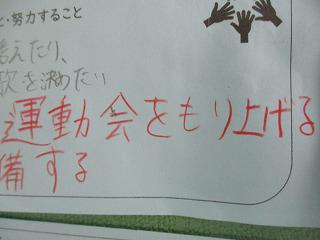 と・努力すること
考えたり、
歌を決めたい
運動会をもり上げる
備する